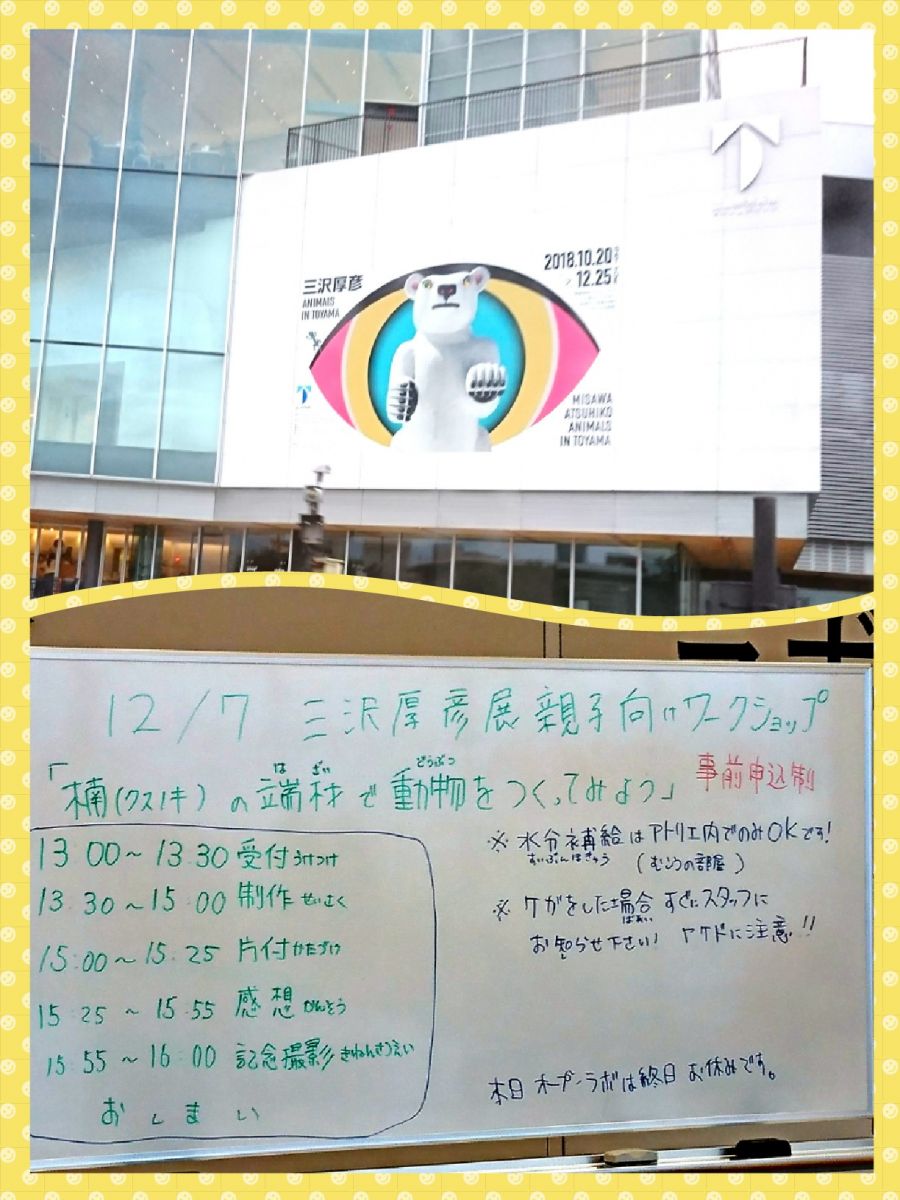 三沢厚彦
ANIMALS
IN TOYAMA
2018.10.20
12.25
MISAWA
ATSUHIKO
ANIMALS
IN TOYAMA
12/7 三沢厚彦展親子向けワークショップ
「楠(クスノキ)の端材で動物をつくってみよう」
はざい
どうぶつ
事前申込制
13:00～13:30 受付 うけつけ
13:30～15:00 制作 せいさく
15:00～15:25 片付 かたづけ
15:25～15:55 感想 かんそう
15:55～16:00 記念撮影 きねんさつえい
おしまい
※水分補給はアトリエ内でのみOKです!
すいぶんほきゅう
(むこうの部屋)
※ケガをした場合すぐにスタッフに
ばあい
お知らせ下さい! ヤケドに注意!!
本日オープンラボは終日お休みです。